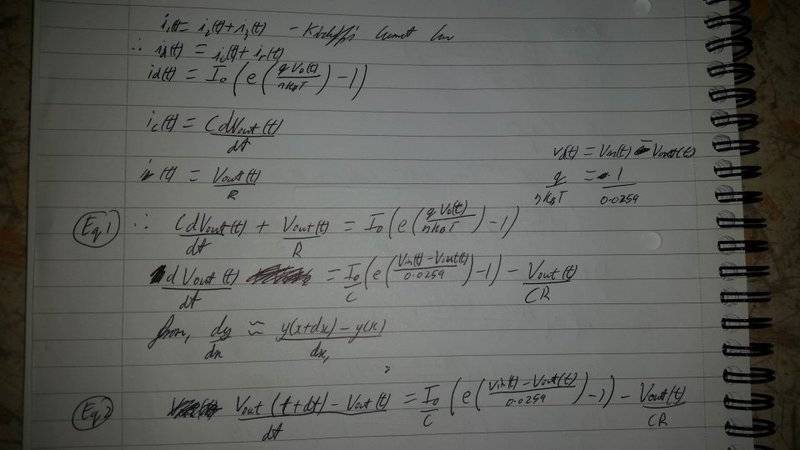 i₁(t) = i₂(t) + i₃(t) - Kirchoff's Current Law
∴ id(t) = ic(t) + ir(t)
id(t) = I₀ (e (q VD(t) / nKBT) - 1)
ic(t) = C dVout(t) / dt
ir(t) = Vout(t) / R
vd(t) = Vin(t) - Vout(t)
q / nKBT = 1 / 0.0259
Eq 1 ∴ C dVout(t) / dt + Vout(t) / R = I₀ (e (q VD(t) / nKBT) - 1)
dVout(t) / dt = I₀ / C (e (Vin(t) - Vout(t) / 0.0259) - 1) - Vout(t) / CR
from, dy / dx ≈ y(x+dx) - y(x) / dx,
Eq 2 Vout (t+dt) - Vout(t) / dt = I₀ / C (e (Vin(t) - Vout(t) / 0.0259) - 1) - Vout(t) / CR